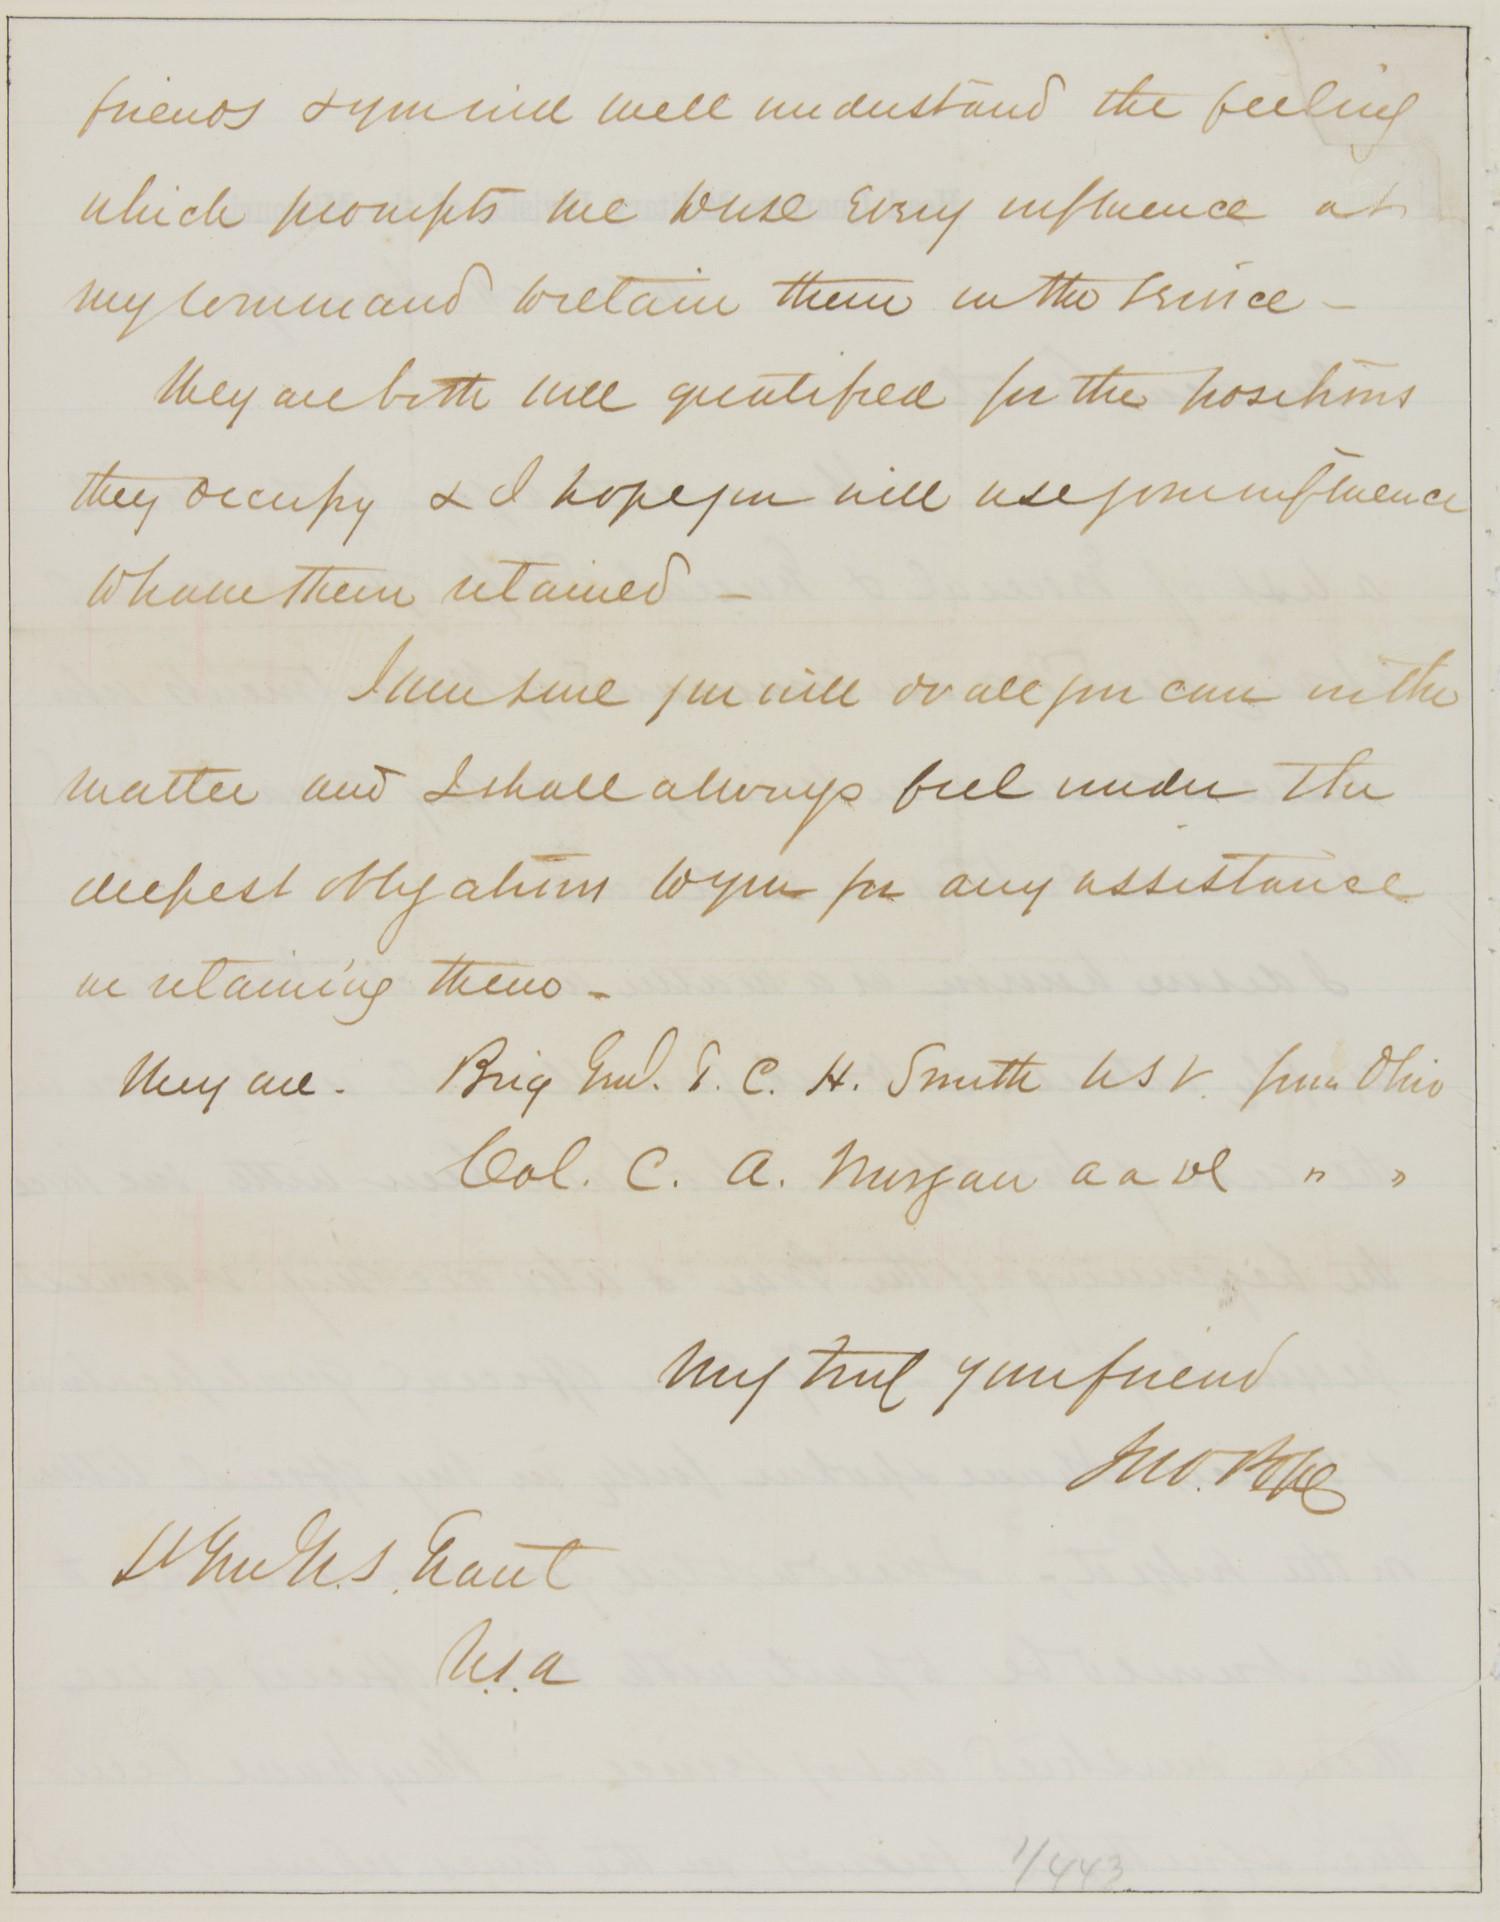 friends & you will well understand the feeling
which prompts me to use every influence at
my command to retain them in the service –
They are both well qualified for the positions
they occupy & I hope you will use your influence
to have them retained –
I am sure you will do all you can in the
matter and I shall always feel under the
deepest obligations to you for any assistance
in retaining them –
They are – Brig Genl. T. C. H. Smith U S V. from Ohio
Col. C. A. Morgan a a d C " "
Very truly your friend
Jno. Pope
Lt Gen U. S. Grant
U.S.A
1/443